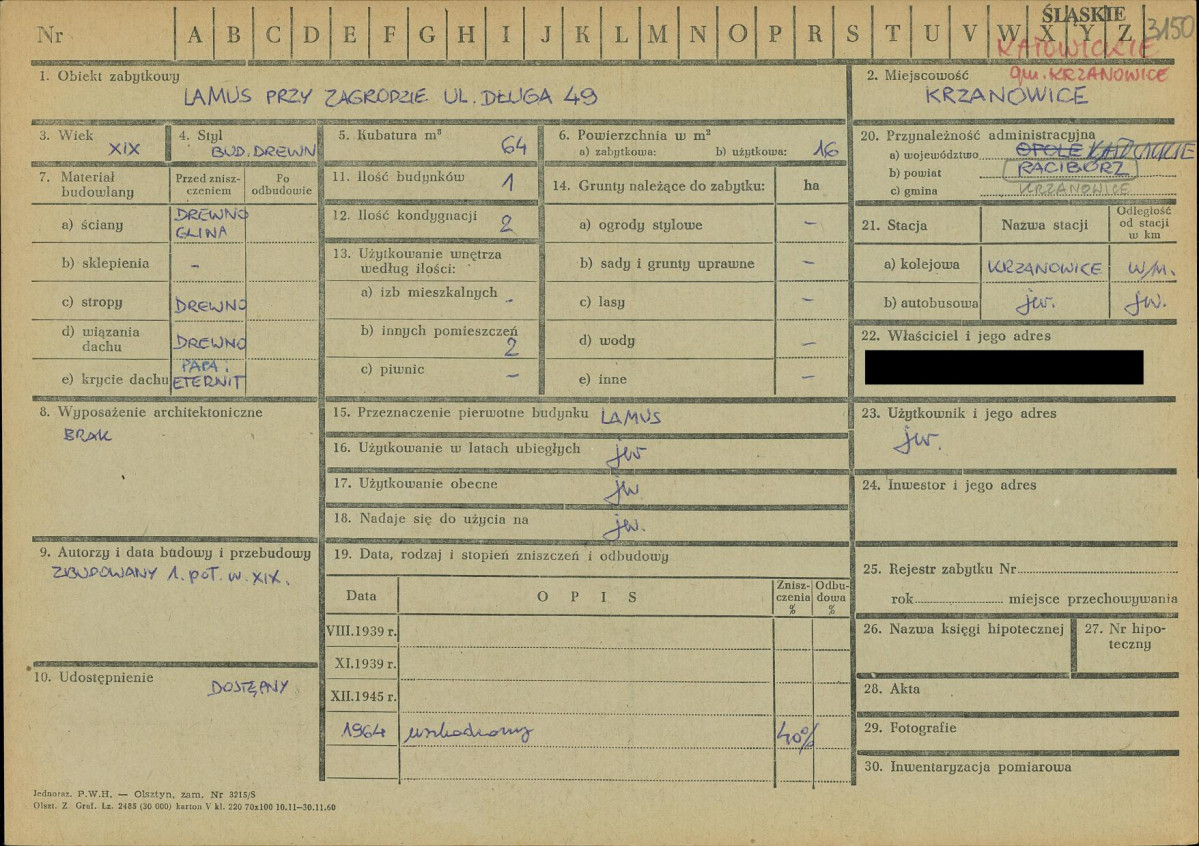 Nr A B C D E F G H I J K L M N O P R S T U V W X Y Z
ŚLĄSKIE 3150
KATOWICKIE
gm. KRZANOWICE
1. Obiekt zabytkowy
LAMUS PRZY ZAGRODZIE UL. DŁUGA 49
2. Miejscowość
KRZANOWICE
3. Wiek
XIX
4. Styl
BUD. DREWN
5. Kubatura m³
64
6. Powierzchnia w m²
a) zabytkowa: b) użytkowa: 16
7. Materiał budowlany
Przed zniszczeniem
Po odbudowie
a) ściany DREWNO GLINA
b) sklepienia -
c) stropy DREWNO
d) wiązania dachu DREWNO
e) krycie dachu PAPA i ETERNIT
8. Wyposażenie architektoniczne
BRAK
9. Autorzy i data budowy i przebudowy
ZBUDOWANY 1. poł. w. XIX.
10. Udostępnienie
DOSTĘPNY
11. Ilość budynków 1
12. Ilość kondygnacji 2
13. Użytkowanie wnętrza według ilości:
a) izb mieszkalnych -
b) innych pomieszczeń 2
c) piwnic -
14. Grunty należące do zabytku: ha
a) ogrody stylowe -
b) sady i grunty uprawne -
c) lasy -
d) wody -
e) inne -
15. Przeznaczenie pierwotne budynku LAMUS
16. Użytkowanie w latach ubiegłych jw
17. Użytkowanie obecne jw.
18. Nadaje się do użycia na jw.
19. Data, rodzaj i stopień zniszczeń i odbudowy
Data OPIS Zniszczenia % Odbudowa %
VIII.1939 r.
XI.1939 r.
XII.1945 r.
1964 uszkodzony 40%
20. Przynależność administracyjna
a) województwo OPOLE KATOWICKIE
b) powiat RACIBÓRZ
c) gmina KRZANOWICE
21. Stacja Nazwa stacji Odległość od stacji w km
a) kolejowa KRZANOWICE w/m.
b) autobusowa jw. jw.
22. Właściciel i jego adres
23. Użytkownik i jego adres
jw.
24. Inwestor i jego adres
25. Rejestr zabytku Nr
rok miejsce przechowywania
26. Nazwa księgi hipotecznej
27. Nr hipoteczny
28. Akta
29. Fotografie
30. Inwentaryzacja pomiarowa
Jednoraz. P.W.H. — Olsztyn, zam. Nr 3215/S
Olszt. Z. Graf. Lz. 2485 (30 000) karton V kl. 220 70x100 10.11—30.11.60